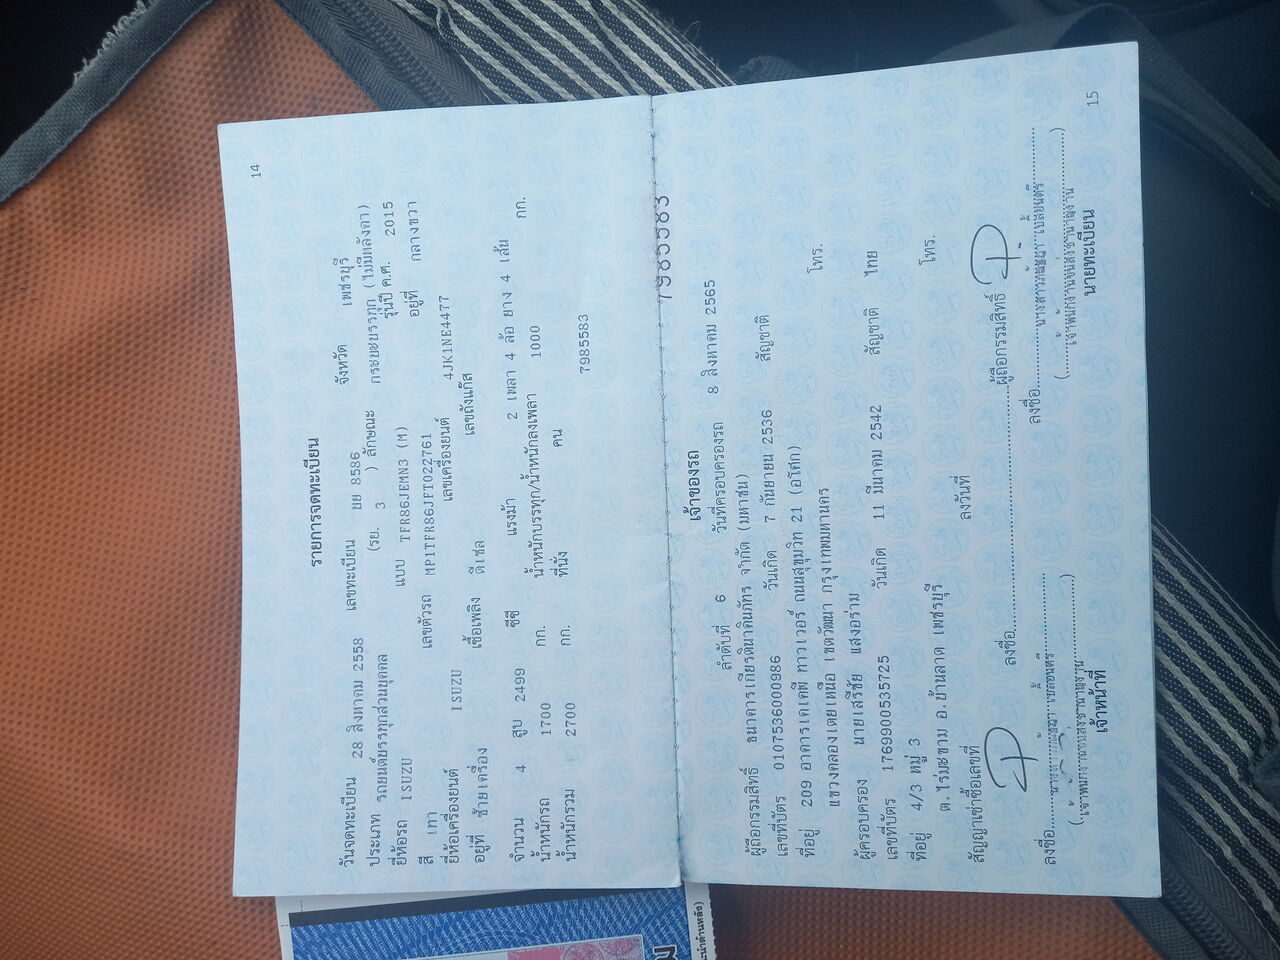 14
รายการจดทะเบียน
วันจดทะเบียน 28 สิงหาคม 2558 เลขทะเบียน ยย 8586 จังหวัด เพชรบุรี
ประเภท รถยนต์บรรทุกส่วนบุคคล (รย. 3 ) ลักษณะ กระบะบรรทุก (ไม่มีหลังคา)
ยี่ห้อรถ ISUZU แบบ TFR86JEMN3 (M) รุ่นปี ค.ศ. 2015
สี เทา เลขตัวรถ MP1TFR86JFT022761 อยู่ที่ กลางขวา
ยี่ห้อเครื่องยนต์ ISUZU เลขเครื่องยนต์ 4JK1NE4477
อยู่ที่ ซ้ายเครื่อง เชื้อเพลิง ดีเซล เลขถังแก๊ส
จำนวน 4 สูบ 2499 ซีซี แรงม้า 2 เพลา 4 ล้อ ยาง 4 เส้น
น้ำหนักรถ 1700 กก. น้ำหนักบรรทุก/น้ำหนักลงเพลา 1000 กก.
น้ำหนักรวม 2700 กก. ที่นั่ง คน
7985583
7985583
เจ้าของรถ
ลำดับที่ 6 วันที่ครอบครองรถ 8 สิงหาคม 2565
ผู้ถือกรรมสิทธิ์ ธนาคารเกียรตินาคินภัทร จำกัด (มหาชน)
เลขที่บัตร 0107536000986 วันเกิด 7 กันยายน 2536 สัญชาติ
ที่อยู่ 209 อาคารเคเคพี ทาวเวอร์ ถนนสุขุมวิท 21 (อโศก)
แขวงคลองเตยเหนือ เขตวัฒนา กรุงเทพมหานคร โทร.
ผู้ครอบครอง นายเสรีชัย แสงอร่าม
เลขที่บัตร 1769900535725 วันเกิด 11 มีนาคม 2542 สัญชาติ ไทย
ที่อยู่ 4/3 หมู่ 3
ต.ไร่มะขาม อ.บ้านลาด เพชรบุรี โทร.
สัญญาเช่าซื้อเลขที่ ลงวันที่
ลงชื่อ ผู้ถือกรรมสิทธิ์
ลงชื่อ ลงชื่อ
(เจ้าพนักงานขนส่งชำนาญงาน) (เจ้าพนักงานขนส่งชำนาญงาน)
เจ้าหน้าที่ นายทะเบียน
15